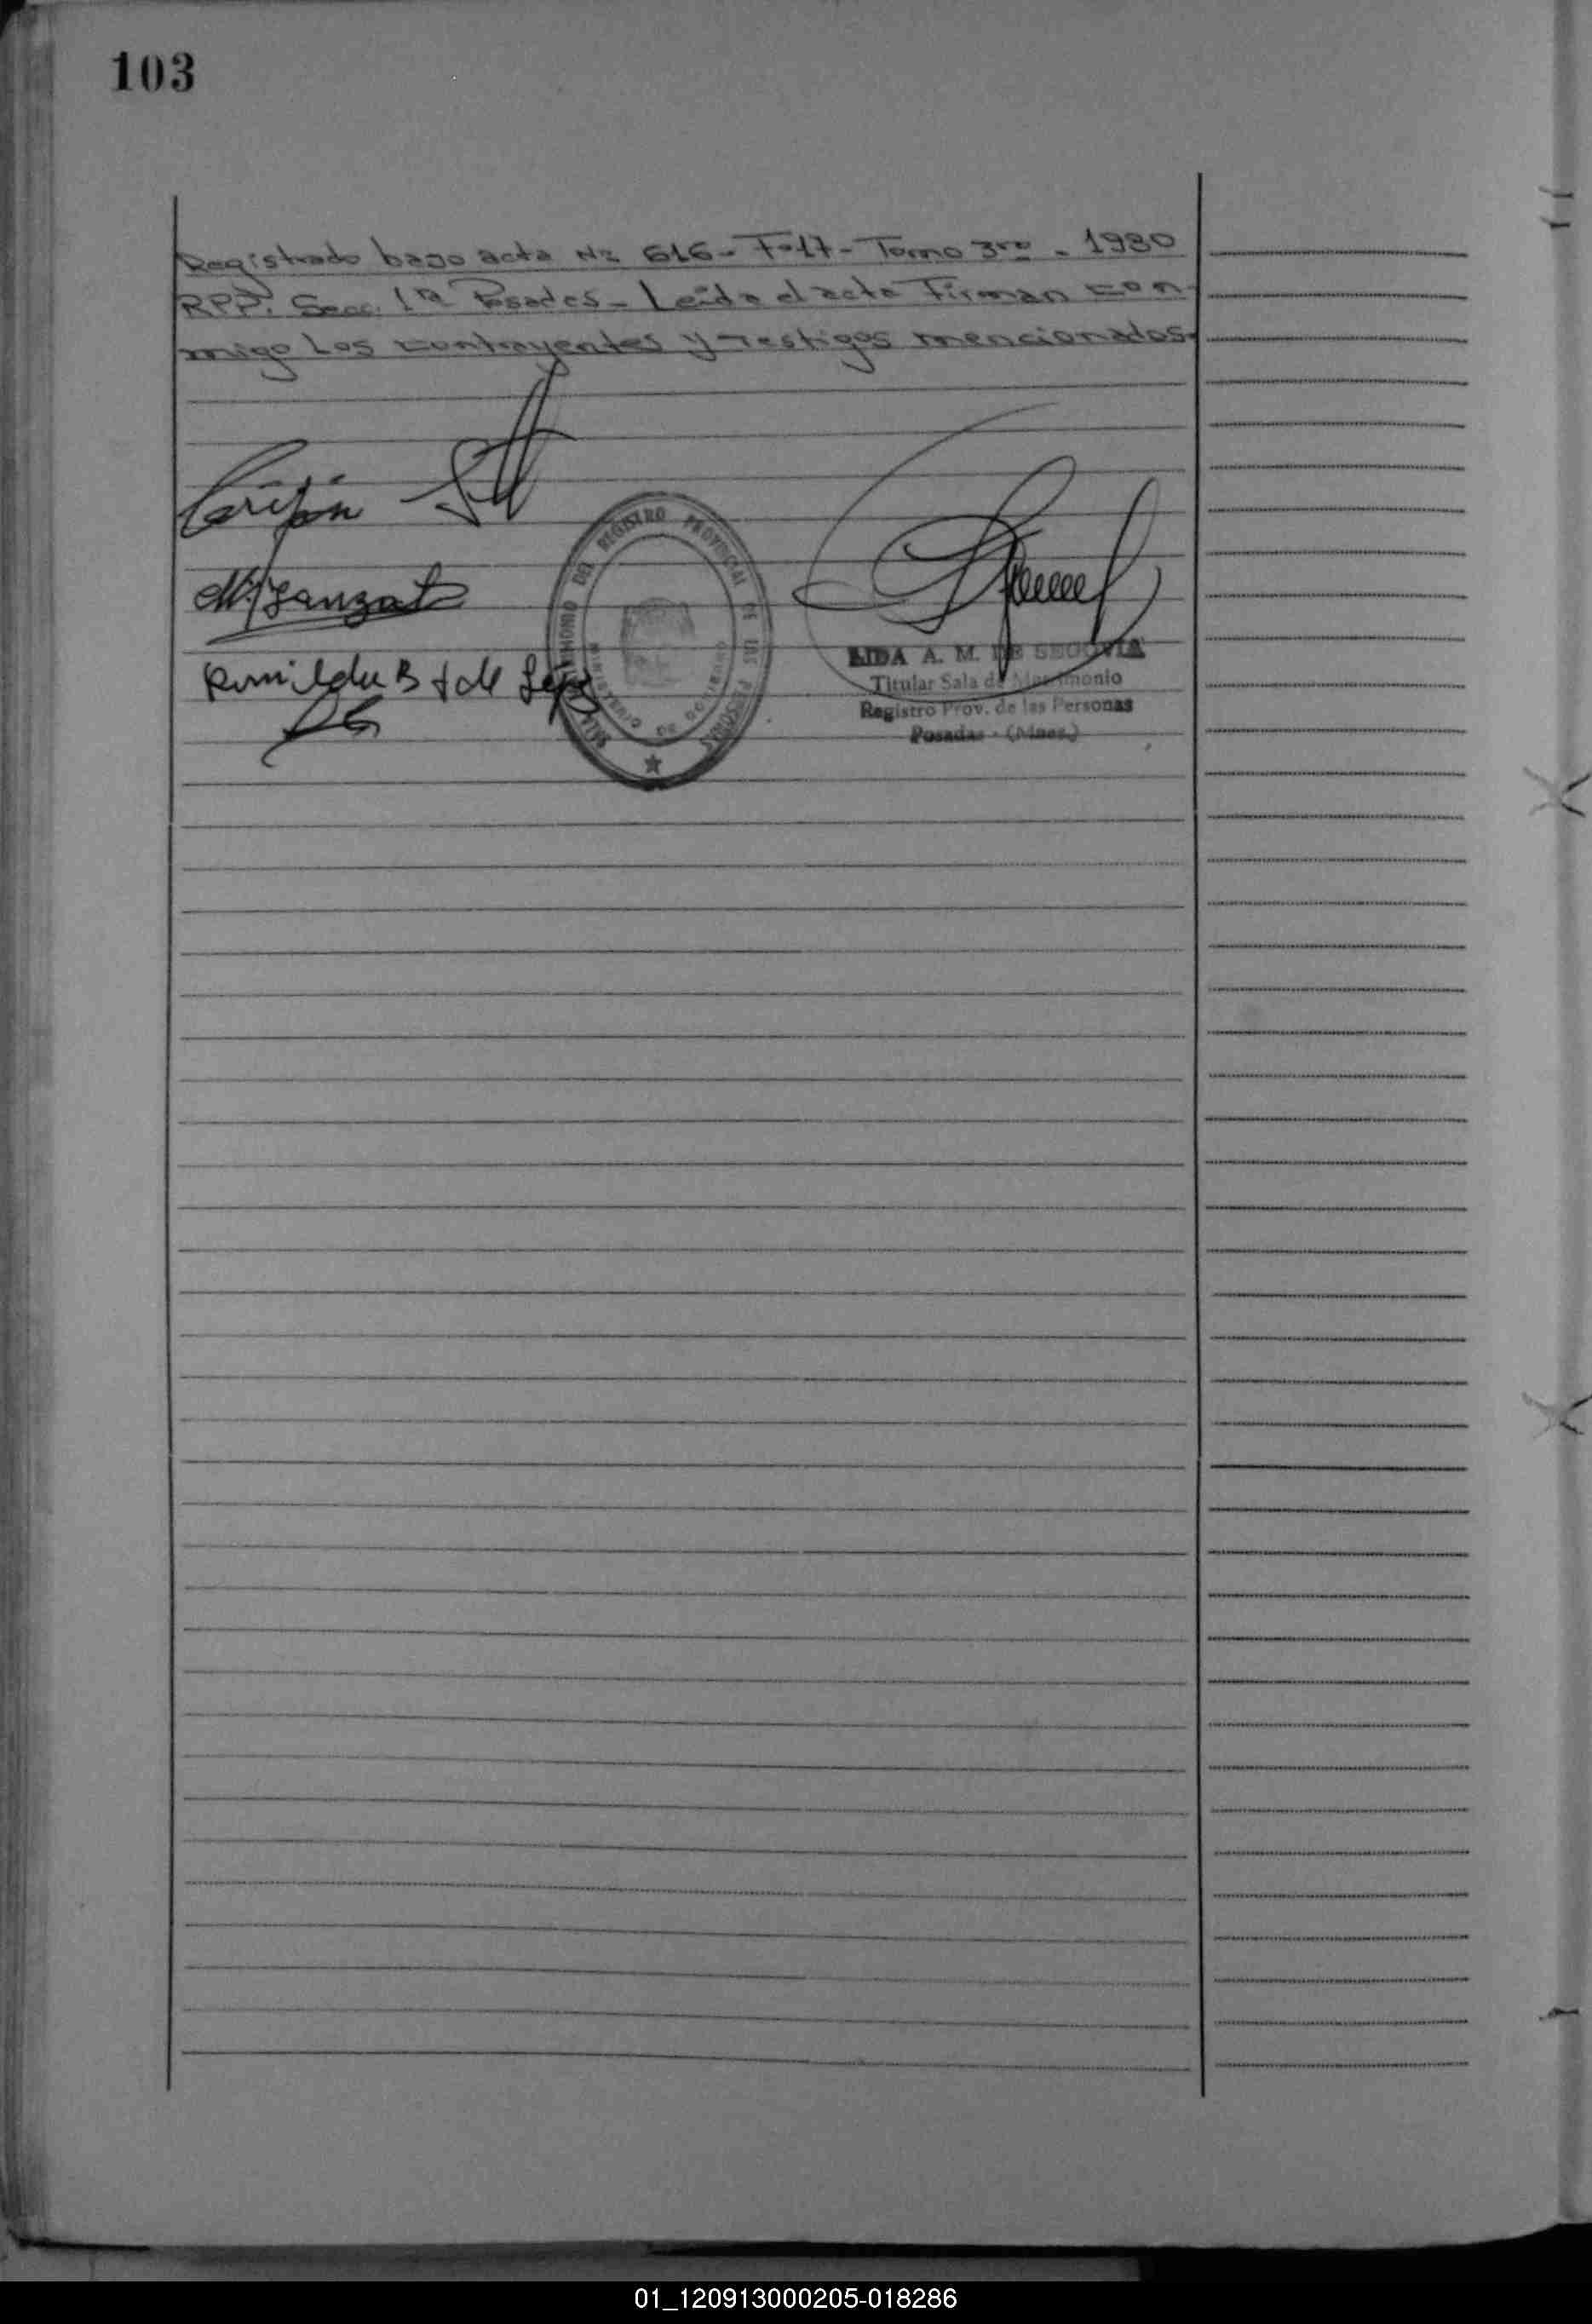 103
Registrado bajo acta Nº 616- Fº17- Tomo 3ro - 1980
RPP. Secc. 1ra Posadas - Leida el acta Firman con-
migo Los contrayentes y testigos mencionados.
REGISTRO PROVINCIAL DE LAS PERSONAS
MINISTERIO DE GOBIERNO
LIDA A. M. DE SEGOVIA
Titular Sala de Matrimonio
Registro Prov. de las Personas
Posadas - (Mnes.)
01_120913000205-018286